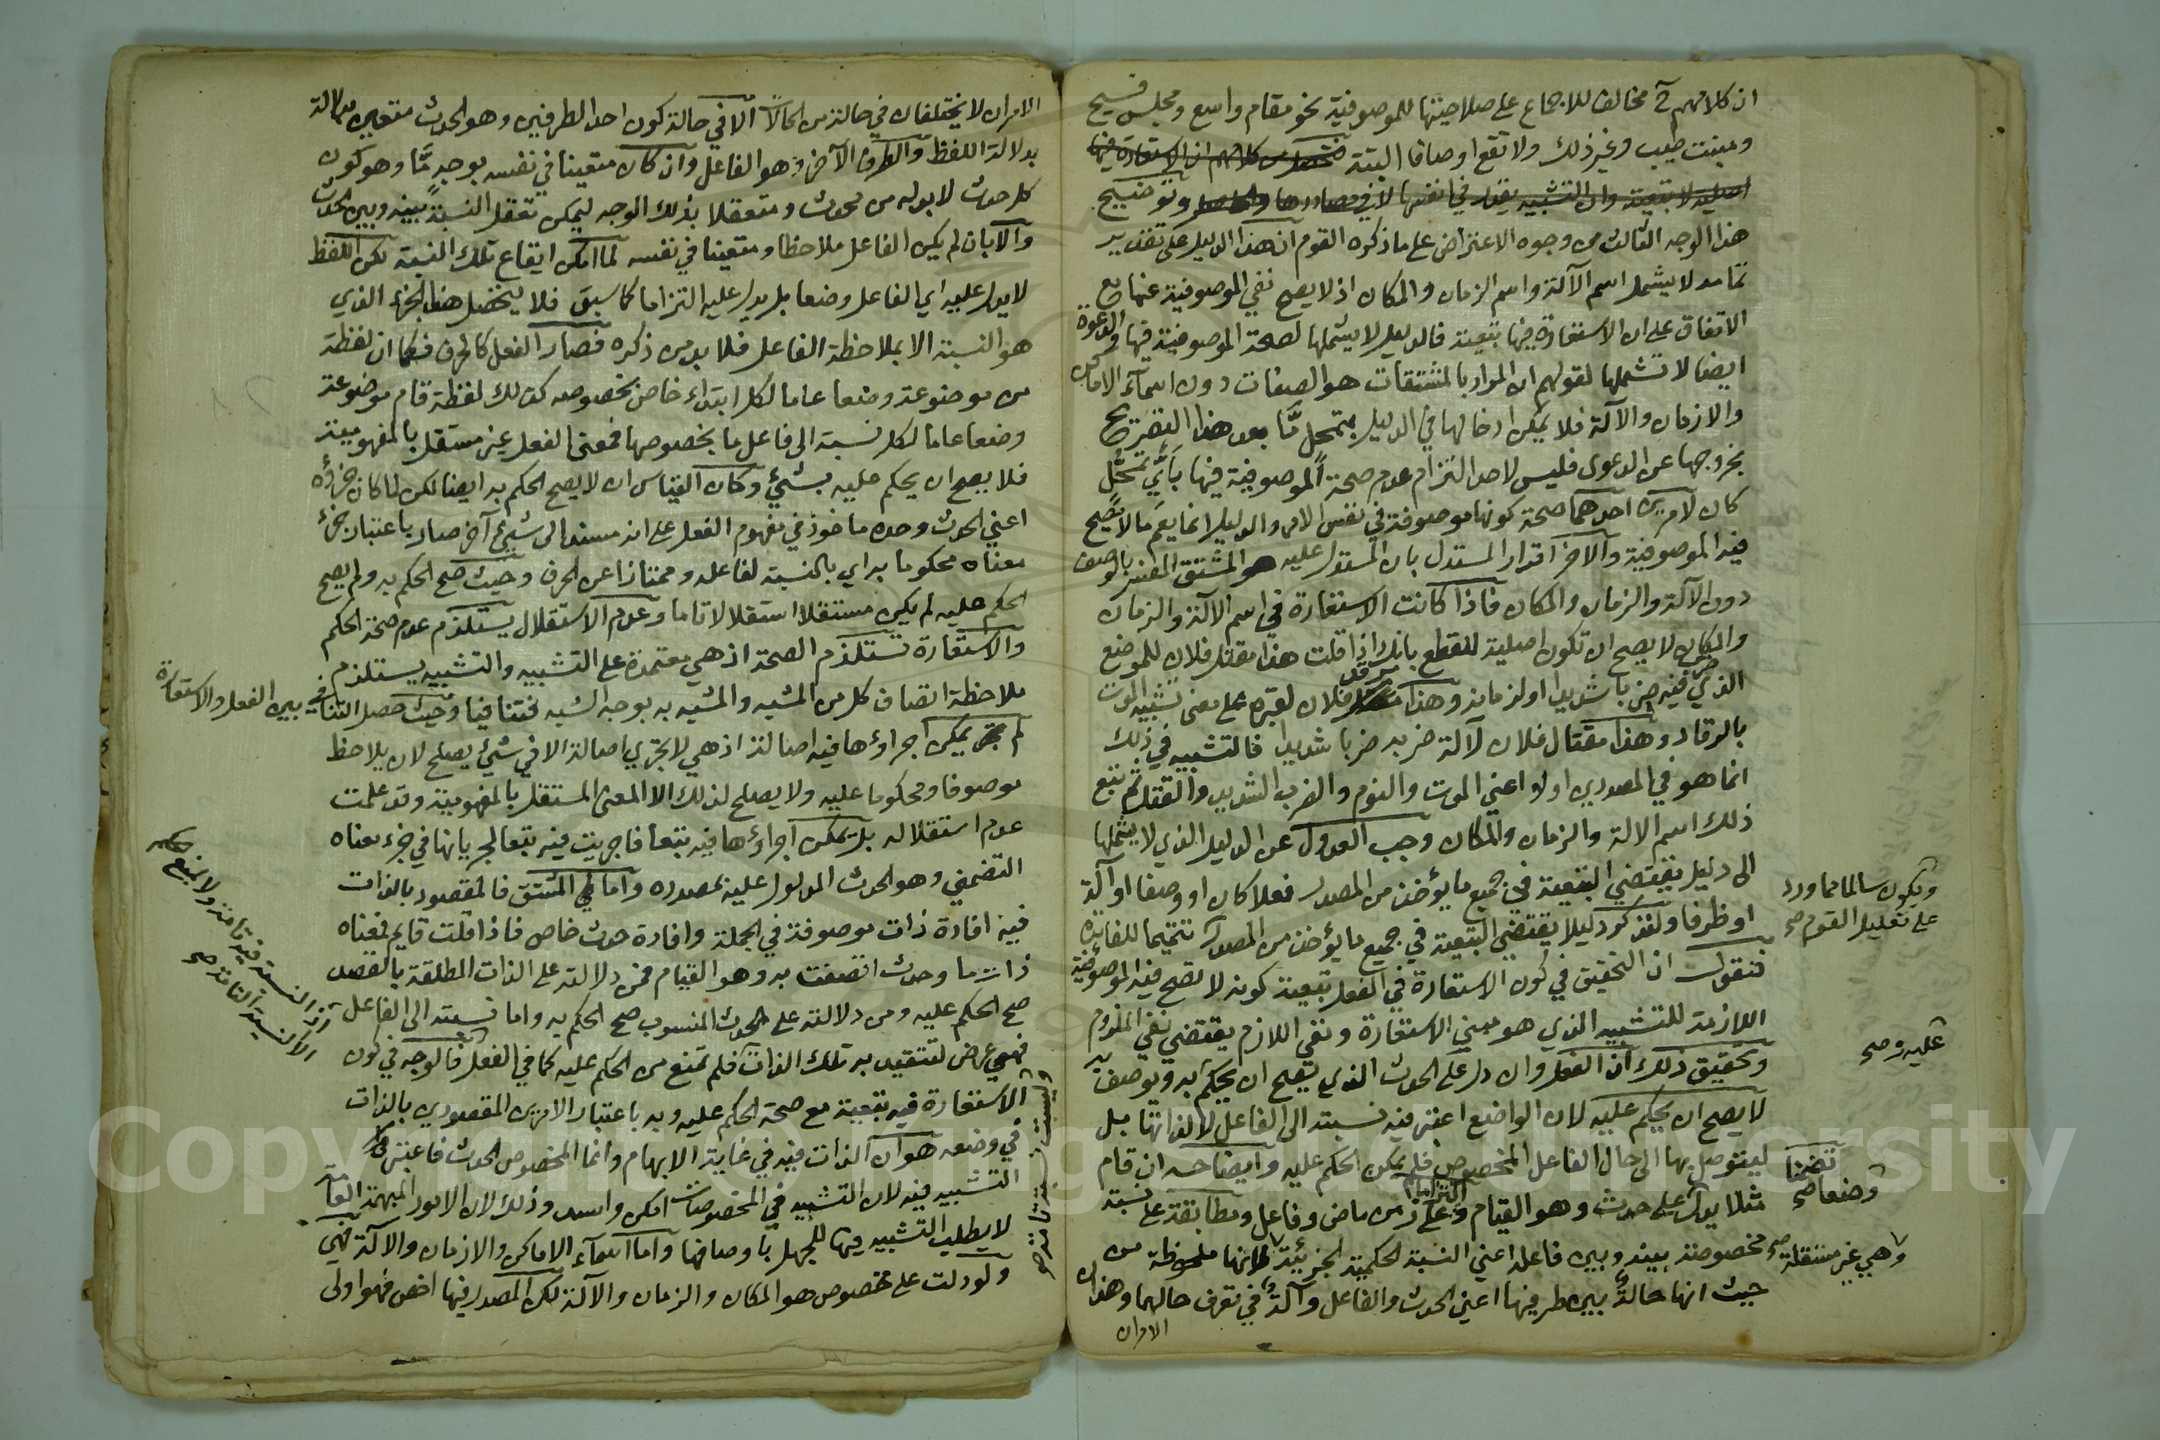 ان كلامهم ح مخالف للاجماع على صلاحيتها للموصوفية نحو مقام واسع ومجلس فسيح
ومبنت طيب وغير ذلك ولا تقع اوصافا البتة فتحصل من كلامهم ان الاستعارة فيها
اصلية لا تبعية وان التشبيه يقدر في انفسها لا في مصادرها وتوضيح
هذا الوجه الثالث من وجوه الاعتراض على ما ذكره القوم ان هذا الدليل على تقدير
تمامه لا يشمل اسم الآلة واسم الزمان والمكان اذ لا يصح نفي الموصوفية عنها مع
الاتفاق على ان الاستعارة فيها تبعية فالدليل لا يشملها لصحة الموصوفية فيها والدعوة
ايضا لا تشملها لقولهم ان المراد بالمشتقات هو الصفات دون اسمآء الاماكن
والازمان والآلة فلا يمكن ادخالها في الدليل بتمحل مّا بعد هذا التصريح
بخروجها عن الدعوى فليس لاحد التزام عدم صحة الموصوفية فيها بأيّ تمحّل
كان لامرين احدهما صحة كونها موصوفة في نفس الامر والدليل انما يعم ما لا يصح
فيه الموصوفية والآخر اقرار المستدل بان المستدل عليه هو المشتق المفسر بالوصف
دون الآلة والزمان والمكان فاذا كانت الاستعارة في اسم الآلة والزمان
والمكان لا يصح ان تكون اصلية للقطع بانك اذا قلت هذا مقتل فلان للموضع
الذي ضرب فيه ضربا شديدا او لزمانه وهذا مرقد فلان لقبره على معنى تشبيه الموت
بالرقاد وهذا مقتال فلان لآلة ضربه ضربا شديدا فالتشبيه في ذلك
انما هو في المصدر اولا اعني الموت والنوم والضرب الشديد والقتل ثم تبع
ذلك اسم الالة والزمان والمكان وجب العدول عن الدليل الذي لا يشملها
الى دليل يقتضي التبعية في جميع ما يؤخذ من المصدر فعلا كان او وصفا او آلة
ويكون سالما مما ورد
على تعليل القوم صح
او ظرفا ولنذكر دليلا يقتضي التبعية في جميع ما يؤخذ من المصدر تتميما للفائدة
فنقول ان التحقيق في كون الاستعارة في الفعل تبعية كونه لا تصح فيه الموصوفية
اللازمة للتشبيه الذي هو مبنى الاستعارة ونفي اللازم يقتضي نفي الملزوم
عليه صح
وتحقيق ذلك ان الفعل وان دل على الحدث الذي يصح ان يحكم به ويوصف به
لا يصح ان يحكم عليه لان الواضع اعتبر فيه نسبته الى الفاعل لا لذاتها بل
ليتوصل بها الى حال الفاعل المخصوص فلم يمكن الحكم عليه وايضاحه ان قام
تضمنا
وضعا صح
مثلا يدل على حدث وهو القيام وعلى زمن ماض وفاعل التزاما ومطابقة على نسبة
مخصوصة بينه وبين فاعله اعني النسبة الحكمية الجزئية لانها ملحوظة من
وهي غير مستقلة صح
حيث انها حالة بين طرفيها اعني الحدث والفاعل وآلة في تعرف حالهما وهذان
الامران
الامران لا يختلفان في حالة من الحالات الا في حالة كون احد الطرفين وهو الحدث متعين بدلالة
بدلالة اللفظ والطرف الآخر وهو الفاعل وان كان متعينا في نفسه بوجه مّا وهو كون
كل حدث لا بد له من محدث ومتعقلا بذلك الوجه ليمكن تعقل النسبة بينه وبين الحدث
والا بان لم يكن الفاعل ملاحظا ومتعينا في نفسه لما امكن ايقاع تلك النسبة لكن اللفظ
لا يدل عليه اي الفاعل وضعا بل يدل عليه التزاما كما سبق فلا يتحصل هذا الجزء الذي
هو النسبة الا بملاحظة الفاعل فلا بد من ذكره فصار الفعل كالحرف فكما ان لفظة
من موضوعة وضعا عاما لكل ابتداء خاص بخصوصه كذلك لفظة قام موضوعة
وضعا عاما لكل نسبة الى فاعل ما بخصوصها فمعنى الفعل غير مستقل بالمفهومية
فلا يصح ان يحكم عليه بشيء وكان القياس ان لا يصح الحكم به ايضا لكن لما كان جزؤه
اعني الحدث وحده ماخوذ في مفهوم الفعل على انه مسند الى شيء آخر صار باعتبار جزء
معناه محكوما به اي بالنسبة لفاعله وممتازا عن الحرف وحيث صح الحكم به ولم يصح
الحكم عليه لم يكن مستقلا استقلالا تاما وعدم الاستقلال يستلزم عدم صحة الحكم
والاستعارة تستلزم الصحة اذ هي معتمدة على التشبيه والتشبيه يستلزم
ملاحظة اتصاف كل من المشبه والمشبه به بوجه الشبه فتنافيا وحيث حصل التنافي بين الفعل والاستعارة
لم يمكن اجراؤها فيه اصالة اذ هي لا تجري اصالة الا في شيء يصلح لان يلاحظ
موصوفا ومحكوما عليه ولا يصلح لذلك الا المعنى المستقل بالمفهومية وقد علمت
عدم استقلاله بل يمكن اجراؤها فيه تبعا فاجريت فيه تبعا لجريانها في جزء معناه
التضمني وهو الحدث المدلول عليه بمصدره واما في المشتق فالمقصود بالذات
فيه افادة ذات موصوفة في الجملة وافادة حدث خاص فاذا قلت قايم فمعناه
ذات ما وحدث اتصفت به وهو القيام فمن دلالته على الذات المطلقة بالقصد
صح الحكم عليه ومن دلالته على الحدث المنسوب صح الحكم به واما نسبته الى الفاعل
اذ النسبة فيه تامة ولا يمنع حكمه
الا النسبة التامة صح
فهي عرض لتتقيد به تلك الذات فلم تمنع من الحكم عليه كما في الفعل فالوجه في كون
وليست نسبته تامة صح
الاستعارة فيه تبعية مع صحة الحكم عليه وبه باعتبار الامرين المقصودين بالذات
في وضعه هو ان الذات فيه في غاية الابهام وانما المخصوص الحدث فاعتبر
التشبيه فيه لان التشبيه في المخصوصات امكن واسد وذلك لان الامور المبهمة العامة
لا يطلب التشبيه فيها للجهل باوصافها واما اسمآء الاماكن والازمان والآلة فهي
ولو دلت على مخصوص هو المكان والزمان والآلة لكن المصدر فيها اخص فهو اولى
Copyright © King Saud University